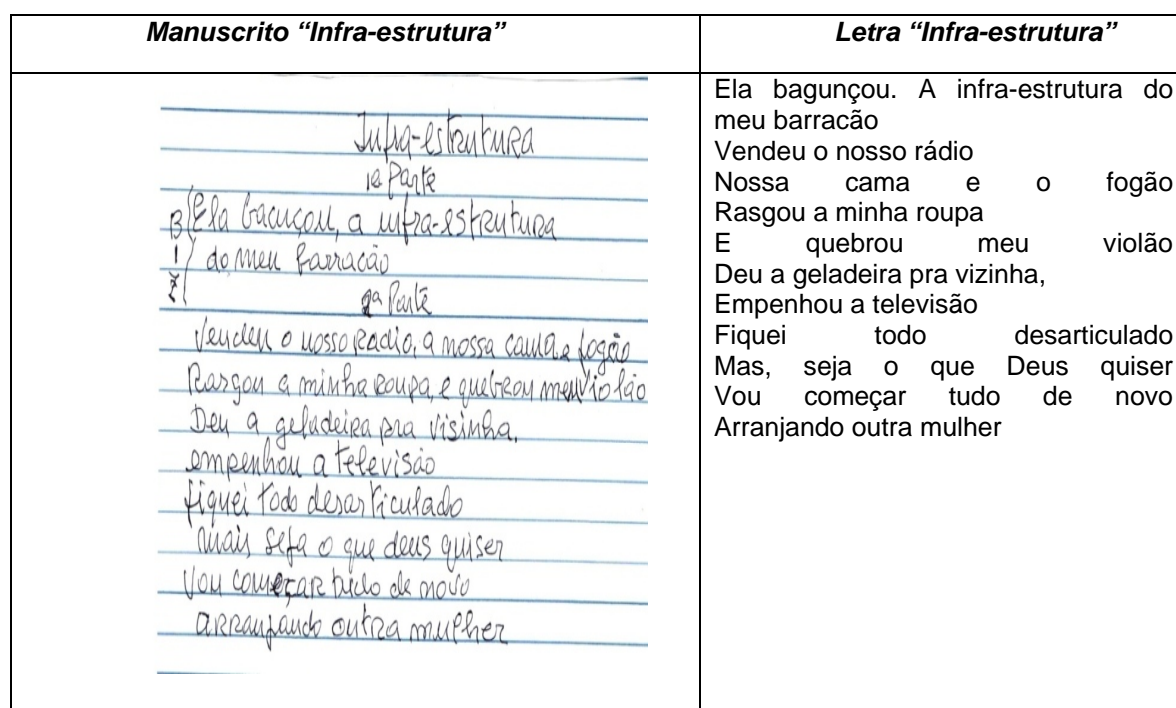 Manuscrito “Infra-estrutura”
Infra-estrutura
1ª Parte
BIZ
Ela bacuçou, a infra-estrutura
do meu barracão
2ª Parte
Vendeu o nosso radio, a nossa cama e fogão
Rasgou a minha roupa, e quebrou meu violão
Deu a geladeira pra visinha,
empenhou a televisão
fiquei todo desarticulado
mais seja o que deus quiser
Vou começar tudo de novo
arranjando outra mulher
Letra “Infra-estrutura”
Ela bagunçou. A infra-estrutura do
meu barracão
Vendeu o nosso rádio
Nossa cama e o fogão
Rasgou a minha roupa
E quebrou meu violão
Deu a geladeira pra vizinha,
Empenhou a televisão
Fiquei todo desarticulado
Mas, seja o que Deus quiser
Vou começar tudo de novo
Arranjando outra mulher